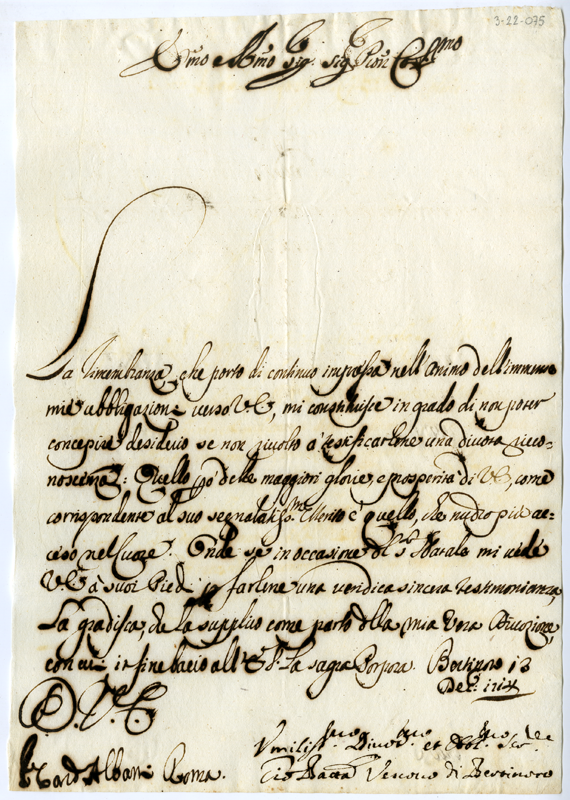 3-22-075
Emo e Rmo Sig. Sig. Pron Colmo
La rimembranza, che porto di continuo impressa nell'animo dell'immense
mie obbligazioni verso V E, mi constituisce in grado di non poter
concepire desiderio se non rivolto a testificarlene una divota rico=
noscenza: Quello però delle maggiori glorie, e prosperità di V E, come
corrispondente al suo segnalatissmo Merito è quello, che nudro più ac=
ceso nel Cuore. Onde se in occasione del S. Natale mi vede
V E à suoi Piedi p farlene una veridica sincera testimonianza,
La gradisca, che la supplico come parto della mia vera Divozione,
con cui in fine bacio all' E V. La sagra Porpora. Bertinoro 13
Decre
D. V. E.
Card Albani Roma.
Vmilissmo Divotmo et Obblmo Serre
Vescovo di Bertinoro